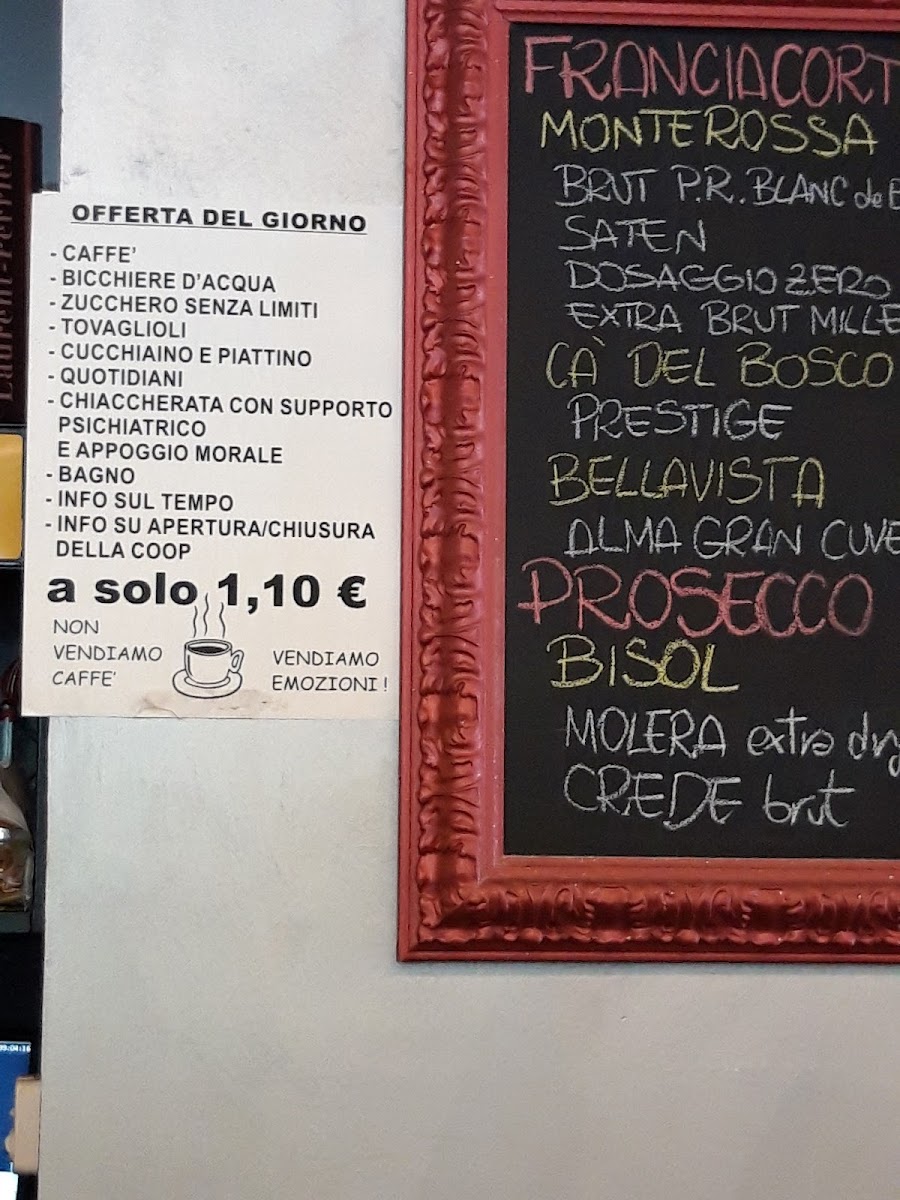 Laurent-Perrier
OFFERTA DEL GIORNO
- CAFFE'
- BICCHIERE D'ACQUA
- ZUCCHERO SENZA LIMITI
- TOVAGLIOLI
- CUCCHIAINO E PIATTINO
- QUOTIDIANI
- CHIACCHERATA CON SUPPORTO
PSICHIATRICO
E APPOGGIO MORALE
- BAGNO
- INFO SUL TEMPO
- INFO SU APERTURA/CHIUSURA
DELLA COOP
a solo 1,10 €
NON
VENDIAMO
CAFFE'
VENDIAMO
EMOZIONI!
FRANCIACORT
MONTEROSSA
BRUT P.R. BLANC de B
SATEN
DOSAGGIO ZERO
EXTRA BRUT MILLE
CÀ DEL BOSCO
PRESTIGE
BELLAVISTA
ALMA GRAN CUVE
PROSECCO
BISOL
MOLERA extra dry
CREDE brut